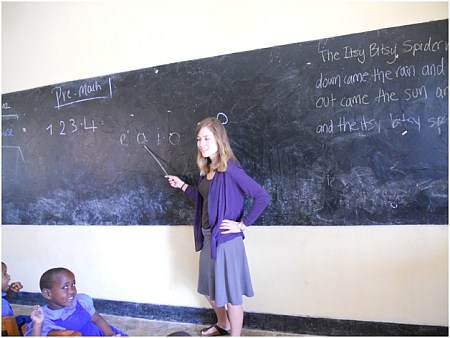 Pre-Math 1
1 2 3 4
The Itsy Bitsy Spider
down came the rain and
out came the sun an
and the itsy bitsy sp